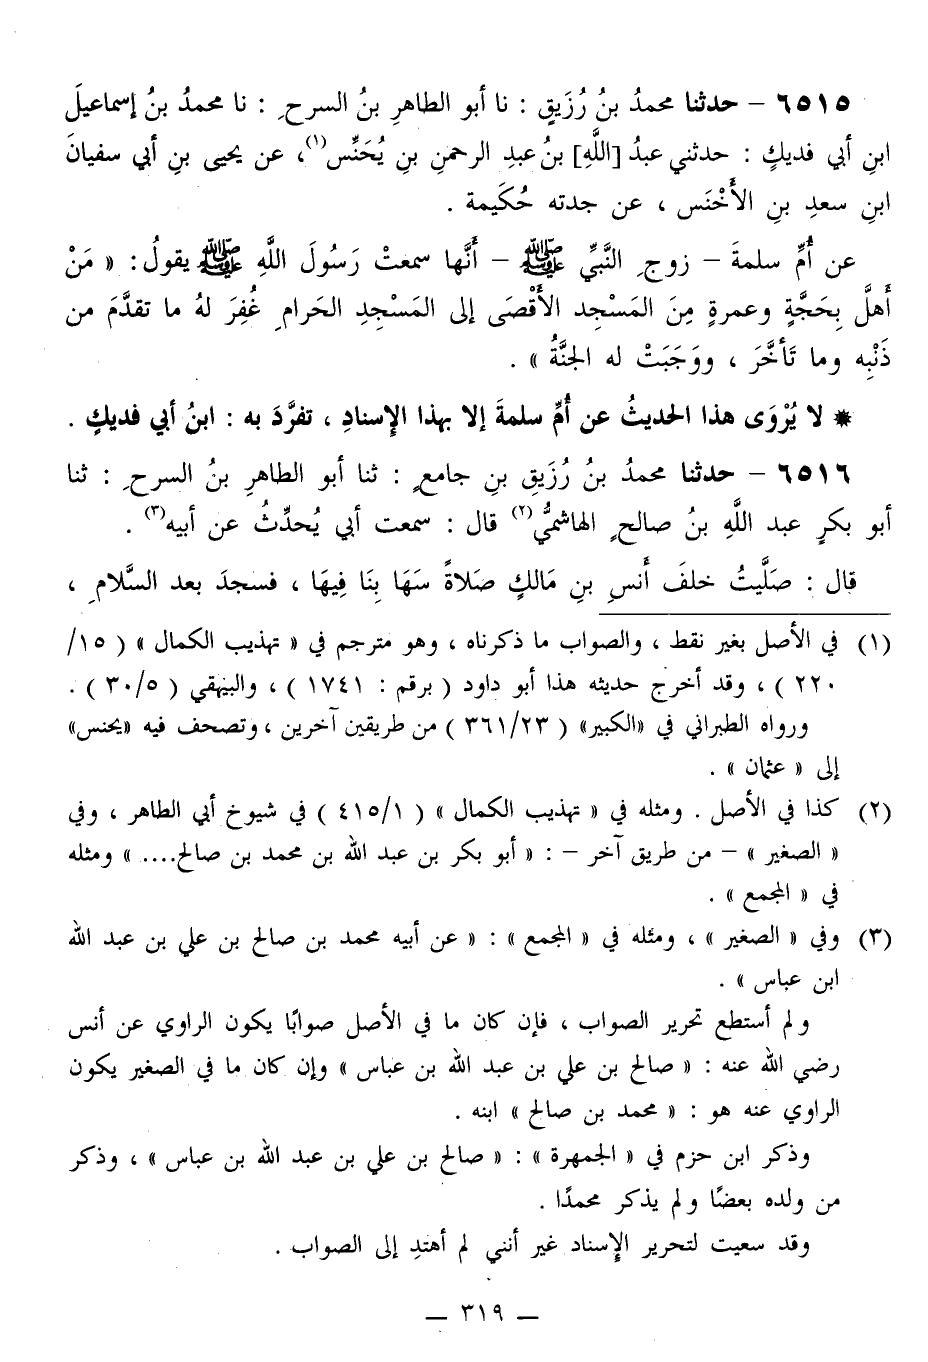 ٦٥١٥ – حدثنا محمدُ بنُ رُزَيقٍ : نا أبو الطاهرِ بنُ السرحِ : نا محمدُ بنُ إسماعيلَ
ابنِ أبي فديكٍ : حدثني عبدُ [اللَّهِ] بنُ عبدِ الرحمنِ بنِ يُحَنِّس(١)، عن يحيى بنِ أبي سفيانَ
ابنِ سعدِ بنِ الأَخْنَس ، عن جدته حُكَيمة .
عن أُمِّ سلمةَ – زوجِ النَّبيِّ ﷺ – أَنَّها سمعتْ رَسُولَ اللَّهِ ﷺ يقولُ : « مَنْ
أَهلَّ بِحَجَّةٍ وعمرةٍ مِنَ المَسْجِد الأَقْصَى إلى المَسْجِدِ الحَرامِ غُفِرَ لهُ ما تقدَّمَ من
ذَنْبِه وما تَأخَّرَ ، ووَجَبَتْ له الجنَّةُ » .
* لا يُرْوَى هذا الحديثُ عن أُمِّ سلمةَ إلا بهذا الإِسنادِ ، تفرَّدَ به : ابنُ أبي فديكٍ .
٦٥١٦ – حدثنا محمدُ بنُ رُزَيقِ بنِ جامعٍ : ثنا أبو الطاهرِ بنُ السرحِ : ثنا
أبو بكرٍ عبد اللَّهِ بنُ صالحٍ الهاشميُّ(٢) قال : سمعت أبي يُحدِّثُ عن أبيه(٣) .
قال : صَلَّيتُ خلفَ أَنسِ بنِ مَالكٍ صَلاةً سَهَا بِنَا فِيهَا ، فسجدَ بعد السَّلامِ ،
(١) في الأصل بغير نقط ، والصواب ما ذكرناه ، وهو مترجم في « تهذيب الكمال » ( ١٥/
٢٢٠ ) ، وقد أخرج حديثه هذا أبو داود ( برقم : ١٧٤١ ) ، والبيهقي ( ٣٠/٥ ) .
ورواه الطبراني في «الكبير» ( ٣٦١/٢٣ ) من طريقين آخرين ، وتصحف فيه «يحنس»
إلى « عثمان » .
(٢) كذا في الأصل . ومثله في « تهذيب الكمال » ( ٤١٥/١ ) في شيوخ أبي الطاهر ، وفي
« الصغير » – من طريق آخر – : « أبو بكر بن عبد الله بن محمد بن صالح.... » ومثله
في « المجمع » .
(٣) وفي « الصغير » ، ومثله في « المجمع » : « عن أبيه محمد بن صالح بن علي بن عبد الله
ابن عباس » .
ولم أستطع تحرير الصواب ، فإن كان ما في الأصل صوابًا يكون الراوي عن أنس
رضي الله عنه : « صالح بن علي بن عبد الله بن عباس » وإن كان ما في الصغير يكون
الراوي عنه هو : « محمد بن صالح » ابنه .
وذكر ابن حزم في « الجمهرة » : « صالح بن علي بن عبد الله بن عباس » ، وذكر
من ولده بعضًا ولم يذكر محمدًا .
وقد سعيت لتحرير الإِسناد غير أنني لم أهتدِ إلى الصواب .
– ٣١٩ –